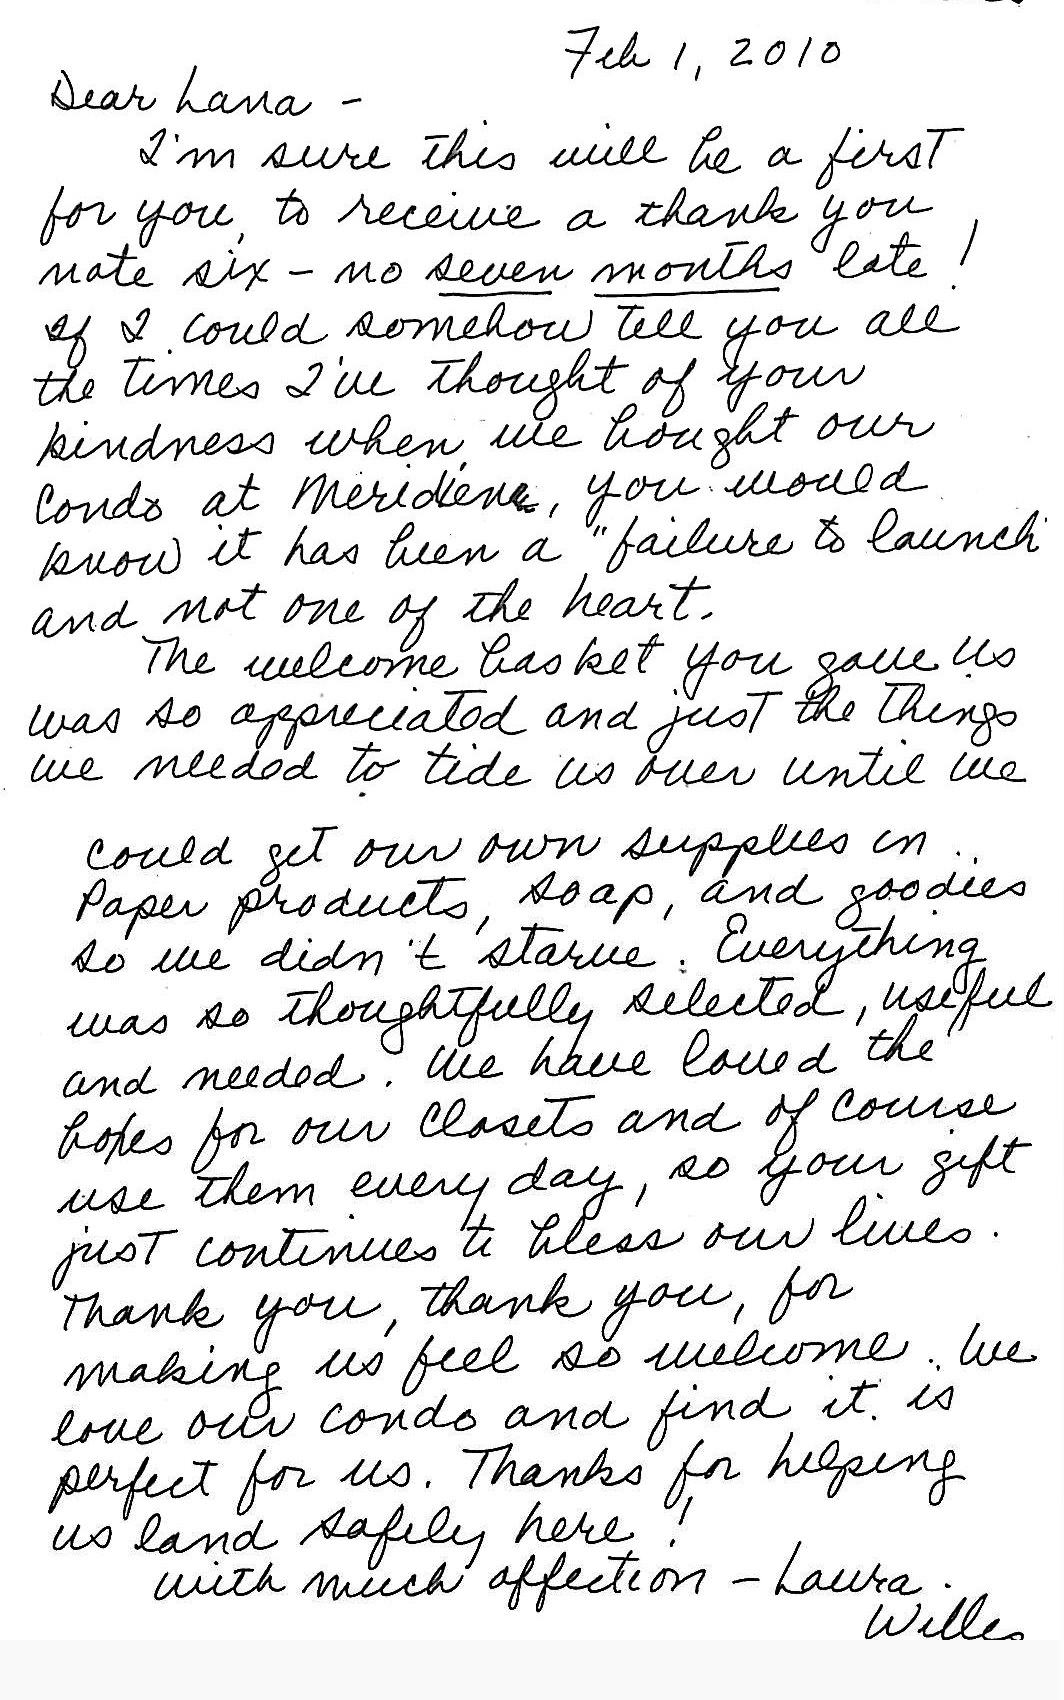 Feb 1, 2010
Dear Lana -
I'm sure this will be a first
for you, to receive a thank you
note six - no seven months late!
If I could somehow tell you all
the times I've thought of your
kindness when we bought our
condo at Meridien, you would
know it has been a "failure to launch"
and not one of the heart.
The welcome basket you gave us
was so appreciated and just the things
we needed to tide us over until we
could get our own supplies in.
Paper products, soap, and goodies
so we didn't starve. Everything
was so thoughtfully selected, useful
and needed. We have loved the
for our closets and of course
use them every day, so your gift
just continues to bless our lives.
Thank you, thank you, for
making us feel so welcome. We
love our condo and find it is
perfect for us. Thanks for helping
us land safely here!
With much affection - Laura
Willes